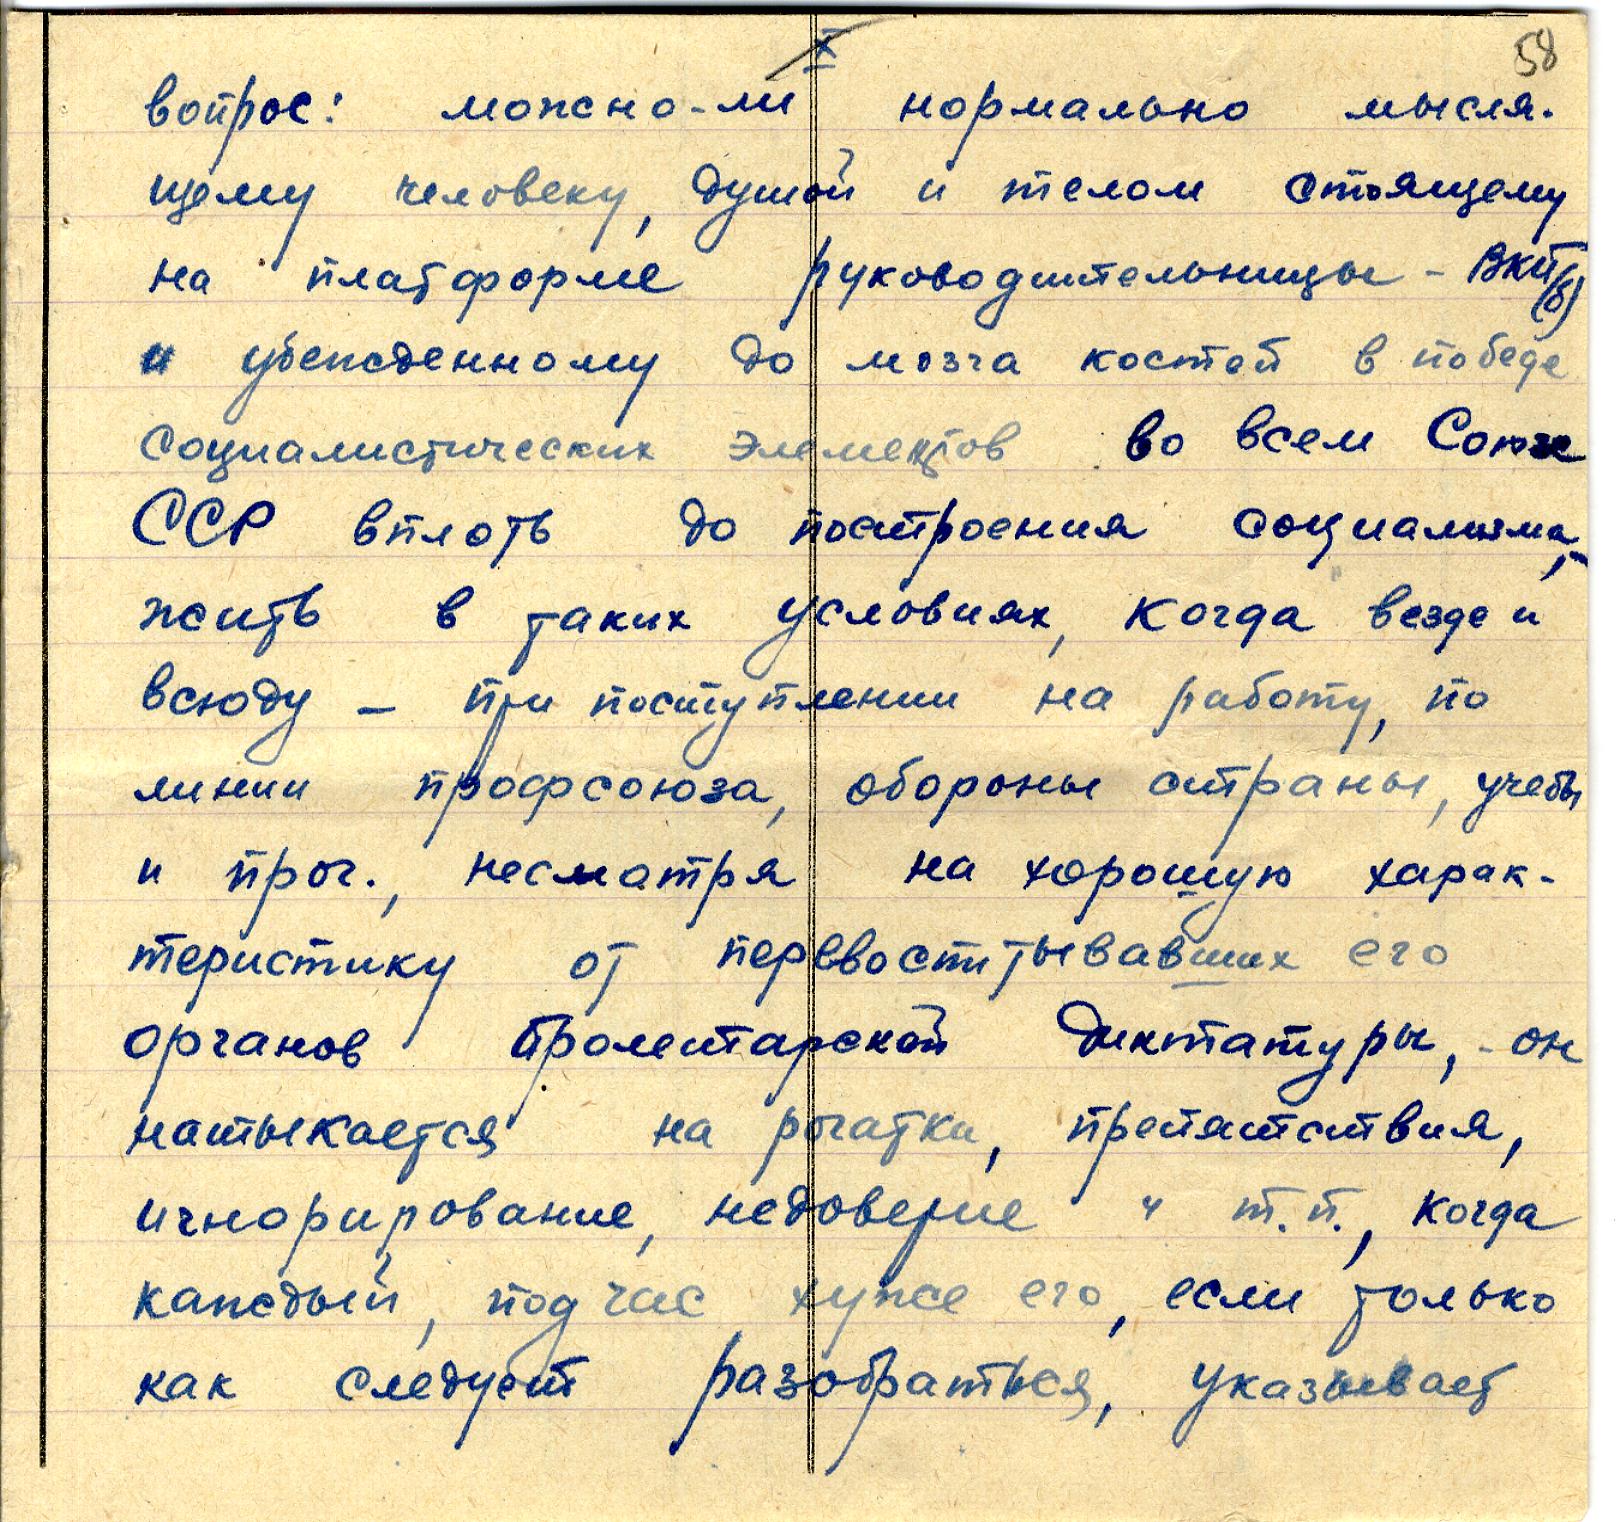 X 58
вопрос: можно-ли нормально мысля-
щему человеку, душой и телом стоящему
на платформе руководительницы - ВКП(б)
и убежденному до мозга костей в победе
социалистических элементов во всем Союзе
ССР вплоть до построения социализма,-
жить в таких условиях, когда везде и
всюду - при поступлении на работу, по
линии профсоюза, обороны страны, учебы
и проч., несмотря на хорошую харак-
теристику от перевоспитывавших его
органов пролетарской диктатуры, - он
натыкается на рогатки, препятствия,
игнорирование, недоверие и т.п., когда
каждый, подчас хуже его, если только
как следует разобраться, указывает